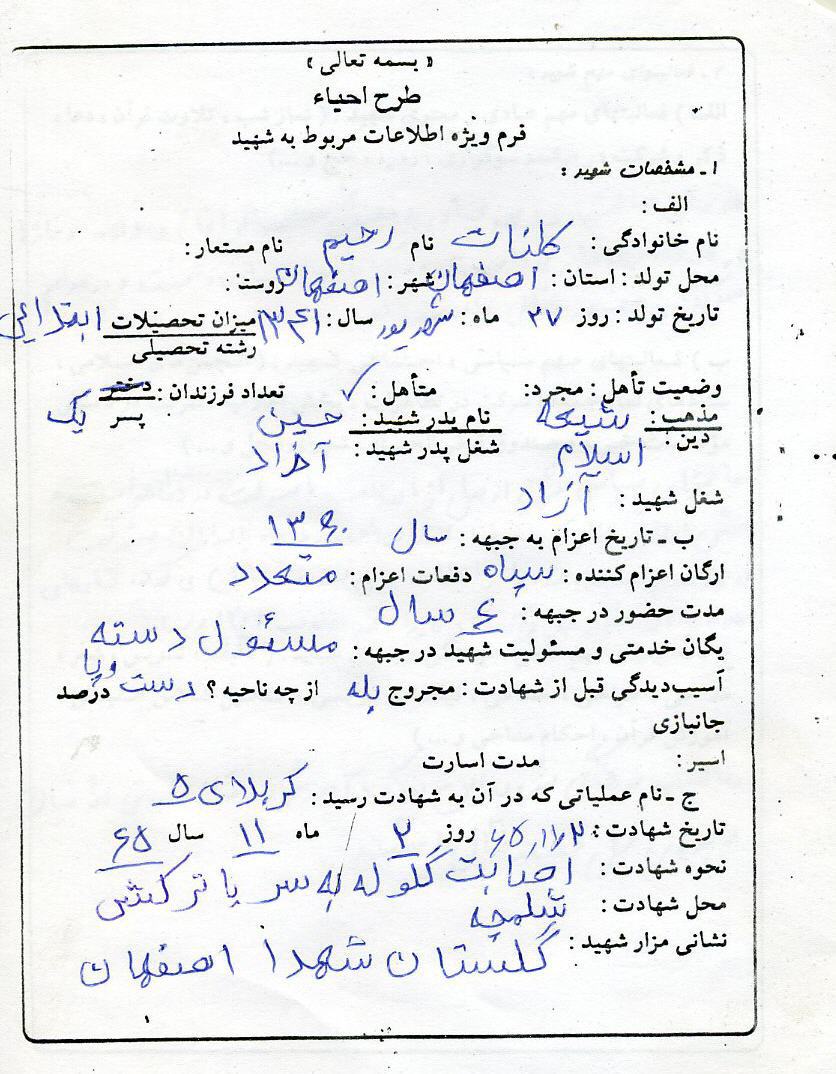 « بسمه تعالی »
طرح احیاء
فرم ویژه اطلاعات مربوط به شهید
۱ـ مشخصات شهید :
الف :
نام خانوادگی : کلنات نام رحیم نام مستعار :
محل تولد : استان : اصفهان شهر : اصفهان روستا :
تاریخ تولد : روز ۲۷ ماه : شهریور سال : ۱۳۴۱ میزان تحصیلات ابتدائی
رشته تحصیلی
وضعیت تأهل : مجرد : متأهل : ✓ تعداد فرزندان : دختر
مذهب : شیعه نام پدر شهید : حسین پسر یک
دین : اسلام شغل پدر شهید : آزاد
شغل شهید : آزاد
ب ـ تاریخ اعزام به جبهه : سال ۱۳۶۰
ارگان اعزام کننده : سپاه دفعات اعزام : متعدد
مدت حضور در جبهه : ۴ سال
یگان خدمتی و مسئولیت شهید در جبهه : مسئول دسته
آسیب‌دیدگی قبل از شهادت : مجروح بله از چه ناحیه ؟ دست و پا درصد
جانبازی
اسیر : مدت اسارت
ج ـ نام عملیاتی که در آن به شهادت رسید : کربلای ۵
تاریخ شهادت : ۶۵٫۱۱٫۳ روز ۳ ماه ۱۱ سال ۶۵
نحوه شهادت : اصابت گلوله به سر یا ترکش
محل شهادت : شلمچه
نشانی مزار شهید : گلستان شهدا اصفهان
۱